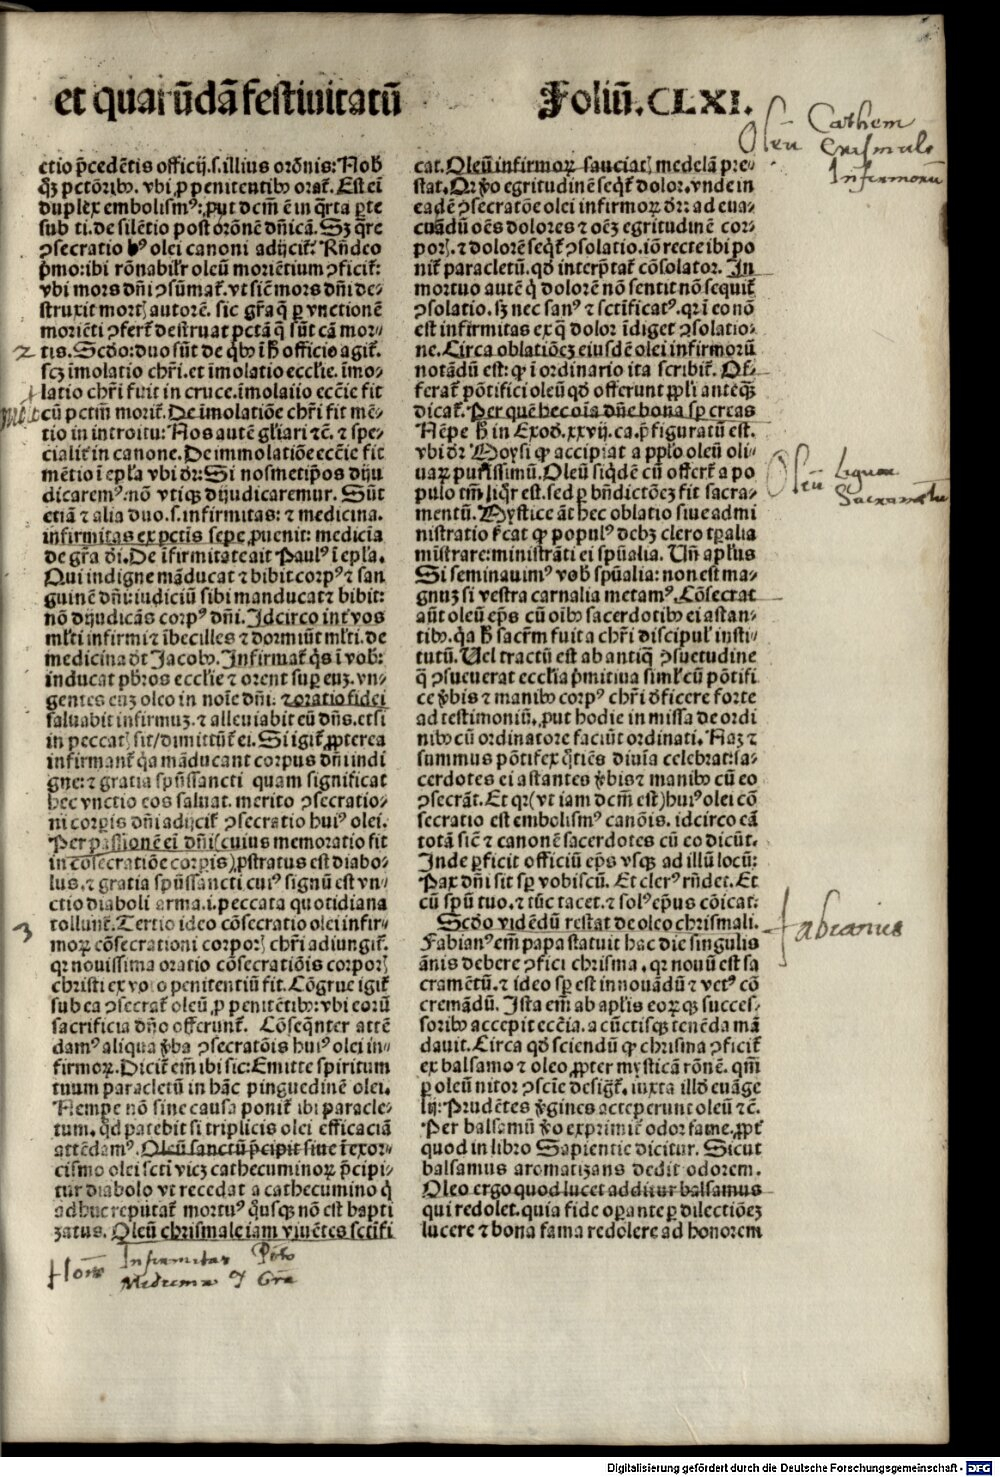 et quarūdā festiuitatū Foliū. CLXI.
ctio p̄cedētis officij. s. illius orōnis: Nob
qȝ pctōribꝰ. vbi ꝓ penitentibꝰ orat̄. Est eī
duplex embolismꝰ: ꝓut dcm̄ ē in q̄rta ꝑte
sub ti. de silētio post orōnē dn̄icā. Sȝ q̄re
ꝯsecratio hꝰ olei canoni adijcit̄: Rn̄deo
p̄mo: ibi rōnabilr̄ oleū moriētium ꝯficit̄:
vbi mors dn̄i ꝯsūmat̄. vt sic̄ mors dn̄i de-
struxit mortꝭ autorē. sic gr̄a q̄ ꝑ vnctionē
moriēti ꝯfert̄ destruat pctā q̄ sūt cā mor-
tis. Scdo: duo sūt de qꝰ in h̄ officio agit̄.
scȝ īmolatio chr̄i. et īmolatio ecclie. īmo-
latio chr̄i fuit in cruce. īmolatio ecc̄ie fit
cū pctm̄ morit̄. De īmolatiōe chr̄i fit mē-
tio in introitu: Nos autē gl̄iari ⁊c̄. ⁊ spe-
cialit̄ in canone. De immolatiōe ecc̄ie fit
mētio ī epl̄a vbi dr̄: Si nosmetip̄os diju
dicaremꝰ. nō vtiqȝ dijudicaremur. Sūt
etiā ⁊ alia duo. s. infirmitas: ⁊ medicina.
infirmitas ex pctis sepe ꝓuenit: medicīa
de gr̄a di. De īfirmitate ait Paulꝰ ī epl̄a.
Qui indigne māducat ⁊ bibit corpꝰ ⁊ san
guinē dn̄i: iudiciū sibi manducat ⁊ bibit:
nō dijudicās corpꝰ dn̄i. Idcirco int̄ vos
ml̄ti infirmi ⁊ ībecilles ⁊ dormiūt ml̄ti. de
medicina dt̄ Jacobꝰ. Infirmat̄ qs ī vob:
inducat p̄bros ecclie ⁊ orent suꝑ euȝ. vn-
gentes euȝ oleo in noīe dn̄i: ⁊ oratio fidei
saluabit infirmuȝ. ⁊ alleuiabit eū dn̄s. et si
in peccatꝭ sit/dimittūt̄ ei. Si igit̄ ꝓpterea
infirmant̄ qa māducant corpus dn̄i indi
gne: ⁊ gratia spūssancti quam significat
hec vnctio eos saluat. merito ꝯsecratio-
ni corꝑis dn̄i adijcit̄ ꝯsecratio huiꝰ olei.
Per passionē eī dn̄i (cuius memoratio fit
in cōsecratiōe corꝑis) ꝓstratus est diabo-
lus. ⁊ gratia spūssancti cuiꝰ signū est vn-
ctio diaboli arma. i. peccata quotidiana
tollunt̄. Tertio ideo cōsecratio olei infir-
moꝝ cōsecrationi corporꝭ chr̄i adiungit̄.
qꝛ nouissima oratio cōsecratiōis corporꝭ
christi ex voto penitentiū fit. Cōgrue igit̄
sub ea ꝯsecrat̄ oleū ꝓ penitētibꝰ: vbi eorū
sacrificia dn̄o offerunt̄. Cōseq̄nter attē
damꝰ aliqua v̄ba ꝯsecratōis huiꝰ olei in-
firmoꝝ. Dicit̄ em̄ ibi sic: Emitte spiritum
tuum paracletū in hāc pinguedinē olei.
Nempe nō sine causa ponit̄ ibi paracle-
tum. qd patebit si triplicis olei efficaciā
attēdamꝰ. Oleū sanctū p̄cipit siue īexor-
cismo olei scti vicȝ cathecuminoꝝ p̄cipi-
tur diabolo vt recedat a cathecumino q̄
adhuc reputat̄ mortuꝰ qusqȝ nō est bapti
zatus. Oleū chrismale iam viuētes sctifi
cat. Oleū infirmoꝝ sauciatꝭ medelā pre-
stat. Qꝛ v̄o egritudinē seqt̄ dolor. vnde in
eadē ꝯsecratōe olei infirmoꝝ dr̄: ad eua-
cuādū oēs dolores ⁊ oēȝ egritudinē cor-
porꝭ. ⁊ dolorē seqt̄ ꝯsolatio. iō recte ibi po
nit̄ paracletū. qd interp̄tat̄ cōsolator. In
mortuo autē q̄ dolorē nō sentit nō sequit̄
ꝯsolatio. sȝ nec sanꝰ ⁊ sctificatꝰ. qꝛ ī eo nō
est infirmitas ex q̄ dolor īdiget ꝯsolatio-
ne. Circa oblatiōeȝ eiusdē olei infirmorū
notādū est: ꝙ ī ordinario ita scribit̄. Of-
ferat̄ pōtifici oleū qd offerunt ppl̄i anteqȝ
dicat̄. Per quē hec oīa dn̄e bona sꝑ creas
Nēpe h̄ in Exod. xxvij. ca. p̄figuratū est.
vbi dr̄ Moysi ꝙ accipiat a ppl̄o oleū oli-
uaꝝ purissimū. Oleū siqdē cū offert̄ a po
pulo tm̄ liqr̄ est. sed ꝑ bn̄dictōeȝ fit sacra-
mentū. Mystice āt hec oblatio siue admi
nistratio fc̄at ꝙ populꝰ debȝ clero tꝑalia
mīstrare: ministrāti ei spūalia. Un̄ apl̄us
Si seminauimꝰ vob spūalia: non est ma-
gnuȝ si vestra carnalia metamꝰ. Cōsecrat
aūt oleū ep̄s cū oībꝰ sacerdotibꝰ ei astan-
tibꝰ. qa h̄ sacr̄m fuit a chr̄i discipulꝭ insti-
tutū. Uel tractū est ab antiq̄ ꝯsuetudine
q̄ ꝯsueuerat ecclia p̄mitiua simlꝭ cū pōtifi
ce v̄bis ⁊ manibꝰ corpꝰ chr̄i ꝯficere forte
ad testimoniū. ꝓut hodie in missa de ordi
nibꝰ cū ordinatore faciūt ordinati. Naȝ ⁊
summus pōtifex q̄tiēs diuīa celebrat: sa-
cerdotes ei astantes v̄bis ⁊ manibꝰ cū eo
ꝯsecrāt. Et qꝛ (vt iam dcm̄ est) huiꝰ olei cō
secratio est embolismꝰ canōis. idcirco eā
totā sic̄ ⁊ canonē sacerdotes cū eo dicūt.
Inde ꝑficit officiū ep̄s vsqȝ ad illū locū:
Pax dn̄i sit sꝑ vobiscū. Et clerꝰ rn̄det. Et
cū spū tuo. ⁊ tūc tacet. ⁊ solꝰ ep̄us cōicat:
Scdo vidēdū restat de oleo chrismali.
Fabianꝰ em̄ papa statuit hac die singulis
ānis debere ꝯfici chrisma. qꝛ nouū est sa
cramētū. ⁊ ideo sꝑ est innouādū ⁊ vetꝰ cō
cremādū. Ista em̄ ab apl̄is eoꝝqȝ succes-
soribꝰ accepit ecc̄ia. a cūctisqȝ tenēda mā
dauit. Circa qd sciendū ꝙ chrisma ꝯficit̄
ex balsamo ⁊ oleo ꝓpter mysticā rōnē. qm̄
ꝑ oleū nitor ꝯscīe desigt̄. iuxta illd euāge
lij: Prudētes v̄gines acceperunt oleū ⁊c̄.
Per balsamū v̄o exprimit̄ odor fame. ꝓpt̄
quod in libro Sapientie dicitur. Sicut
balsamus aromatizans dedit odorem.
Oleo ergo quod lucet additur balsamus
qui redolet. quia fide oꝑante ꝑ dilectiōeȝ
lucere ⁊ bona fama redolere ad honorem
Oleū Cathem
Crismale
Infirmorū
2
Oleū Liquor
Sacramētū
3
Fabianus
Infirmitas Pcto
Medicina Gra
Digitalisierung gefördert durch die Deutsche Forschungsgemeinschaft - DFG